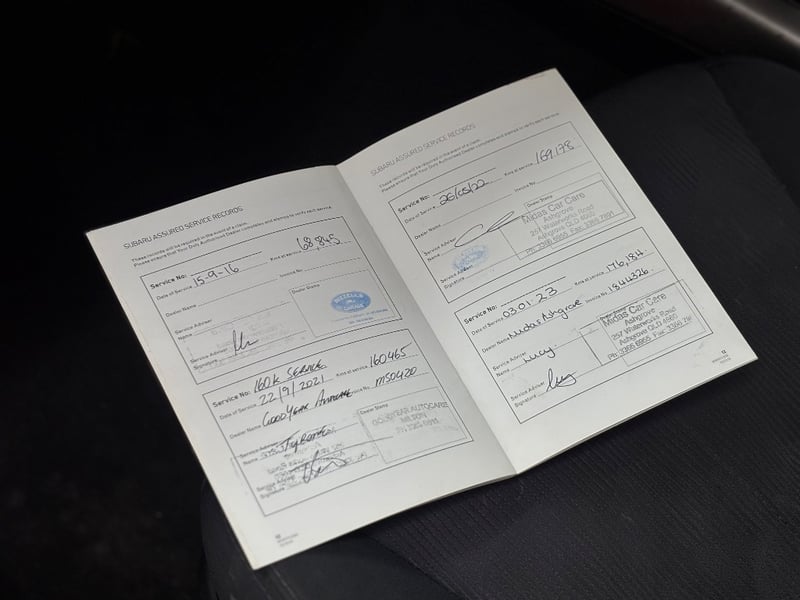 SUBARU ASSURED SERVICE RECORDS
These records will be required in the event of a claim.
Please ensure that Your Duly Authorised Dealer completes and stamps to verify each service.
Service No:
Date of Service 15-9-16 Kms at service 68,845
Dealer Name Invoice No
Service Adviser Name
Dealer Stamp
Service Adviser Signature
Service No: 160K SERVICE
Date of Service 22/9/2021 Kms at service 160,465
Dealer Name GOODYEAR Invoice No M50420
Service Adviser Name
Dealer Stamp
GOODYEAR AUTOCARE
MILTON
Service Adviser Signature
SUBARU ASSURED SERVICE RECORDS
These records will be required in the event of a claim.
Please ensure that Your Duly Authorised Dealer completes and stamps to verify each service.
Service No:
Date of Service 26/05/22 Kms at service 169,178
Dealer Name Invoice No
Service Adviser Name
Dealer Stamp
Midas Car Care
Ashgrove
257 Waterworks Road
Ashgrove QLD 4060
Service Adviser Signature
Service No:
Date of Service 03.01.23 Kms at service 176,184
Dealer Name Midas Ashgrove Invoice No 1844326
Service Adviser Name Lucy
Midas Car Care
Ashgrove
257 Waterworks Road
Ashgrove QLD 4060
Service Adviser Signature